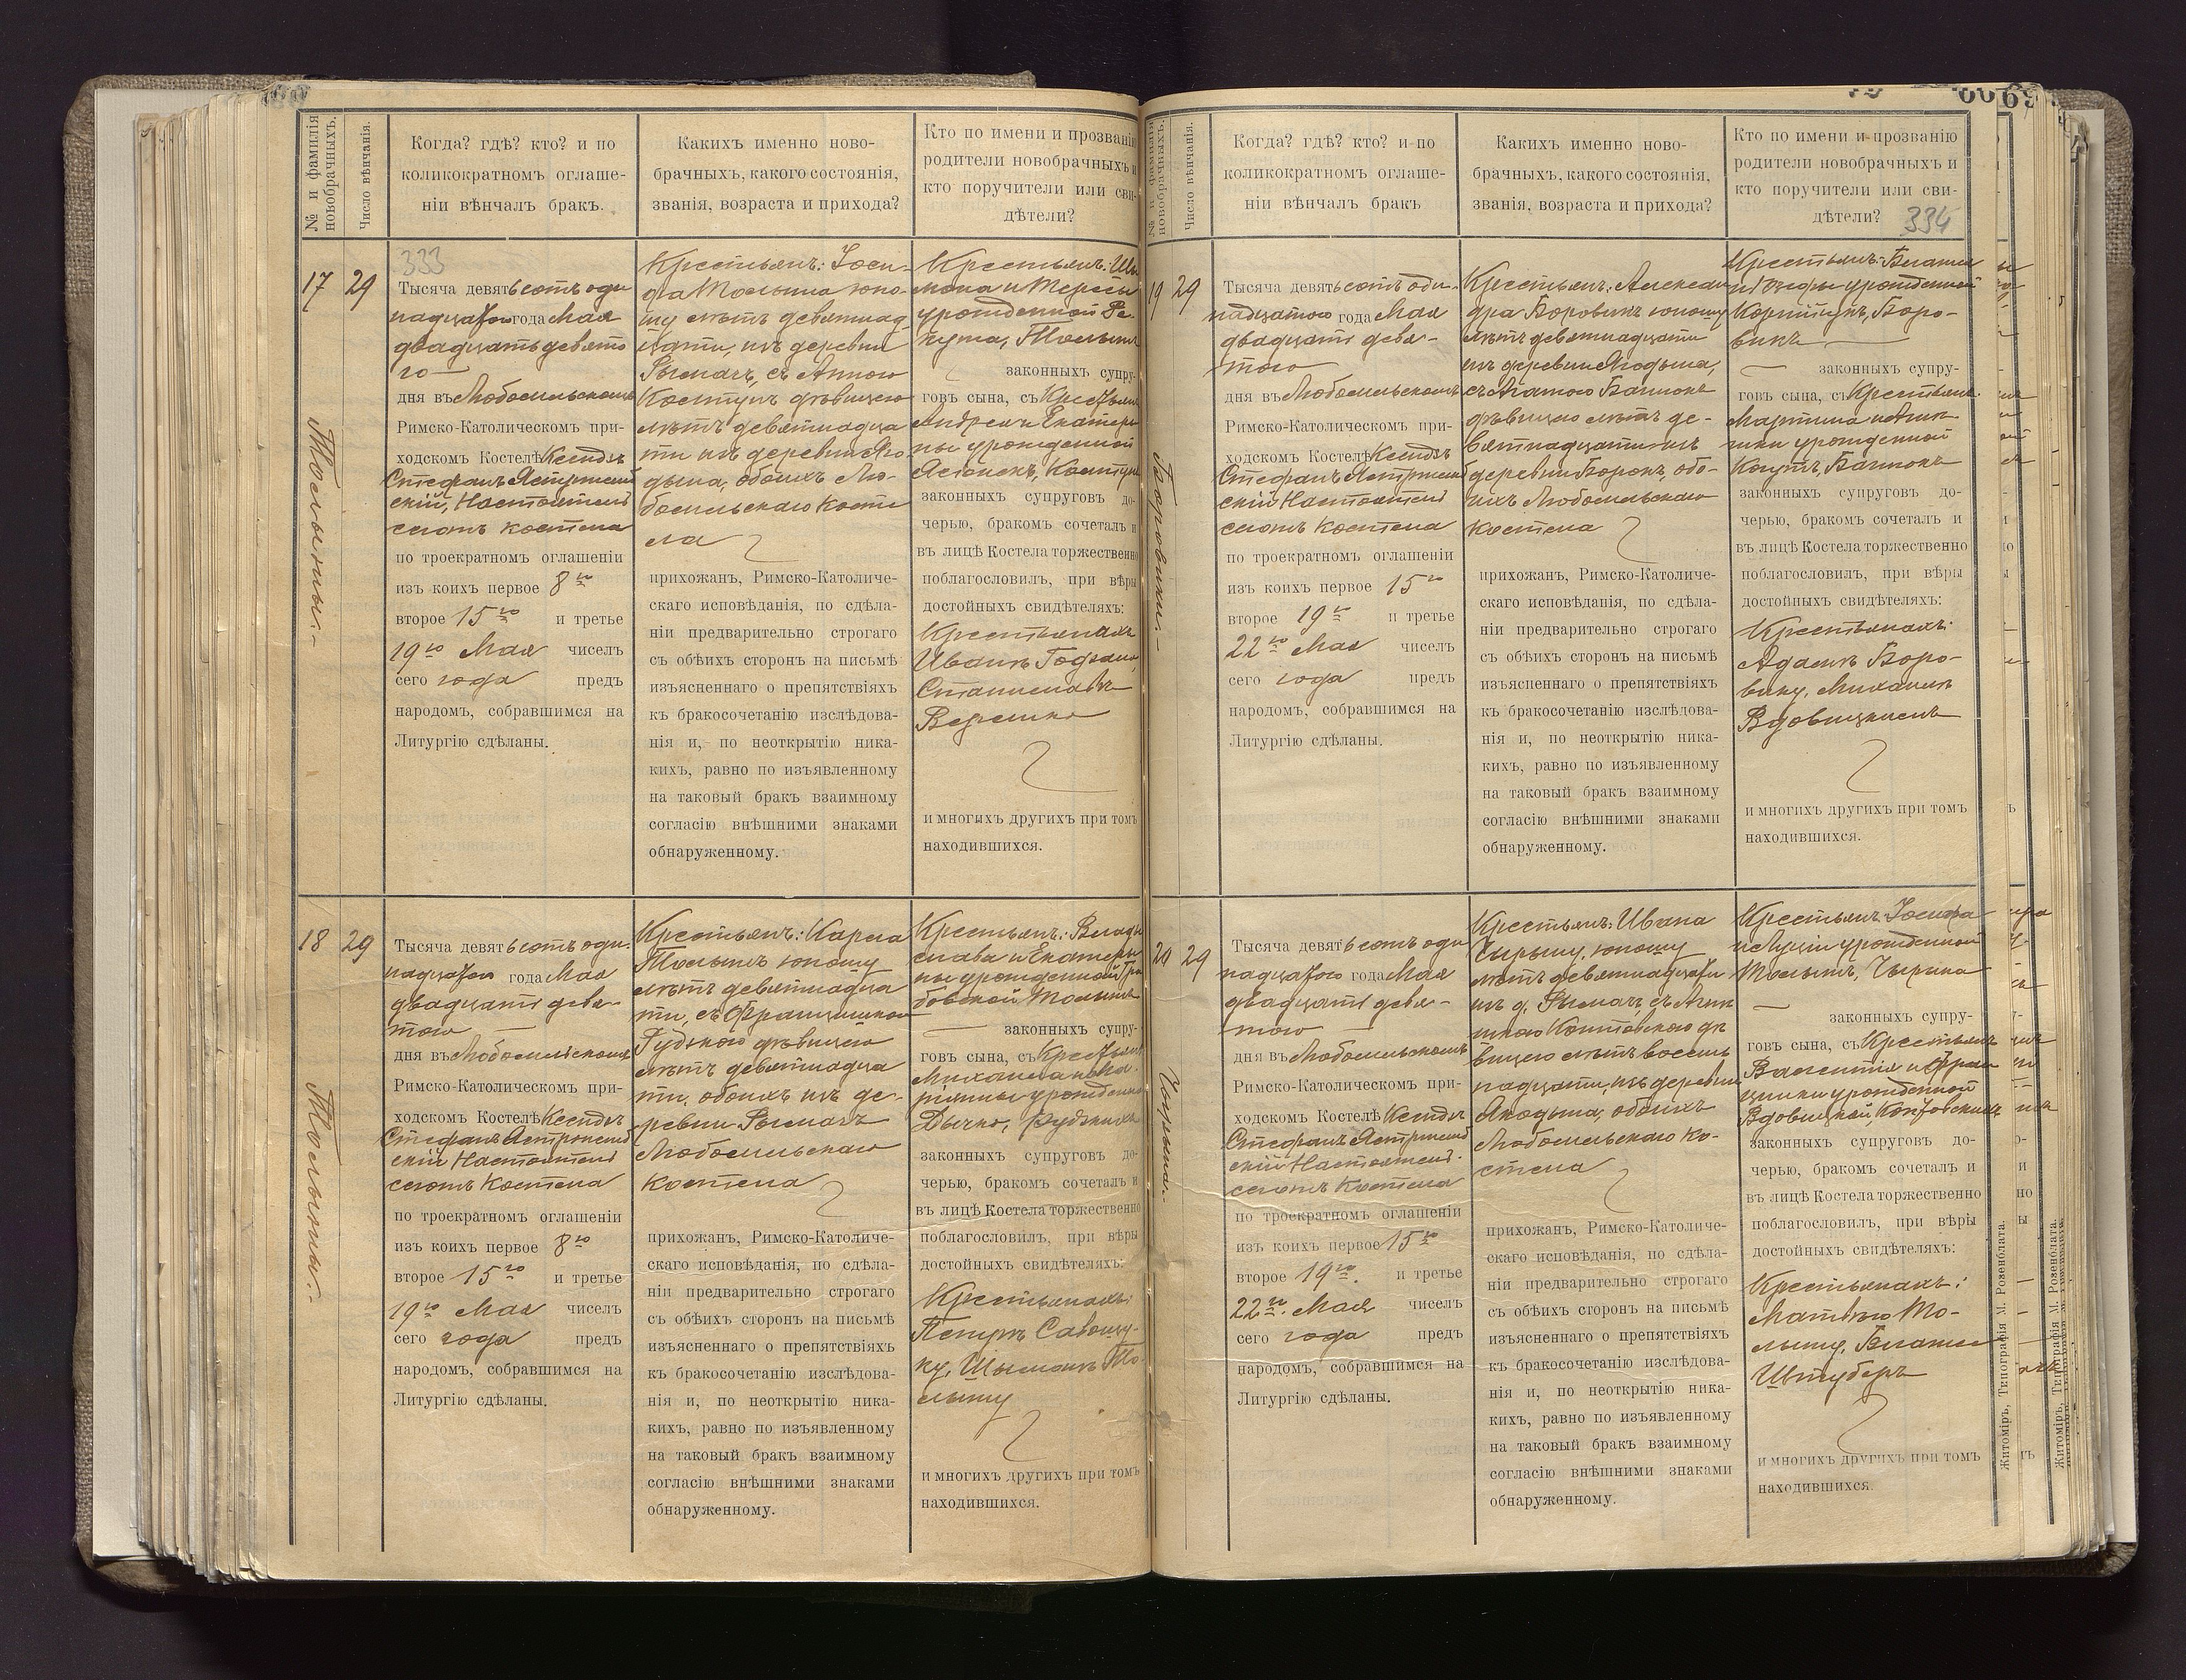 № и фамилія новобрачныхъ.
Число вѣнчанія.
Когда? гдѣ? кто? и по
коликократномъ оглаше-
ніи вѣнчалъ бракъ.
Какихъ именно ново-
брачныхъ, какого состоянія,
званія, возраста и прихода?
Кто по имени и прозванію
родители новобрачныхъ и
кто поручители или сви-
дѣтели?
17
29
333
Тысяча девятьсотъ оди
надцатого года Мая
двадцать девято
го
дня въ Любомльскомъ
Римско-Католическомъ при-
ходскомъ Костелѣ Ксендзъ
Стефанъ Ястржемб
скій, Настоятель
сего костела
по троекратномъ оглашеніи
изъ коихъ первое 8го
второе 15го и третье
19го Мая чиселъ
сего года предъ
народомъ, собравшимся на
Литургію сдѣланы.
Крестьянъ: Іоси-
фа юно-
шу лѣтъ девятнад
цати, изъ деревни
Рымачъ, съ Анною
дѣвицею
лѣтъ девятнадца
ти изъ деревни Яго
дына, обоихъ Лю-
бомльскаго косте
ла
прихожанъ, Римско-Католиче-
скаго исповѣданія, по сдѣла-
ніи предварительно строгаго
съ обѣихъ сторонъ на письмѣ
изъясненнаго о препятствіяхъ
къ бракосочетанію изслѣдова-
нія и, по неоткрытію ника-
кихъ, равно по изъявленному
на таковый бракъ взаимному
согласію внѣшними знаками
обнаруженному.
Крестьянъ:
и Терезы
урожденной
законныхъ супру-
говъ сына, съ Крестьянъ
Андрея и Екатери
ны урожденной
законныхъ супруговъ до-
черью, бракомъ сочеталъ и
въ лицѣ Костела торжественно
поблагословилъ, при вѣры
достойныхъ свидѣтеляхъ:
Крестьянахъ
Иванѣ
Станиславѣ
и многихъ другихъ при томъ
находившихся.
18
29
Тысяча девятьсотъ оди-
надцатого года Мая
двадцать девя-
того
дня въ Любомльскомъ
Римско-Католическомъ при-
ходскомъ Костелѣ Ксендзъ
Стефанъ Ястржемб
скій Настоятель
сего Костела
по троекратномъ оглашеніи
изъ коихъ первое 8го
второе 15го и третье
19го Мая чиселъ
сего года предъ
народомъ, собравшимся на
Литургію сдѣланы.
Крестьянъ: Карла
юношу
лѣтъ девятнадца
ти, съ Францишкою
дѣвицею
лѣтъ девятнадца
ти, обоихъ изъ де-
ревни Рымачъ
Любомльскаго
костела
прихожанъ, Римско-Католиче-
скаго исповѣданія, по сдѣла-
ніи предварительно строгаго
съ обѣихъ сторонъ на письмѣ
изъясненнаго о препятствіяхъ
къ бракосочетанію изслѣдова-
нія и, по неоткрытію ника-
кихъ, равно по изъявленному
на таковый бракъ взаимному
согласію внѣшними знаками
обнаруженному.
Крестьянъ: Влади
слава и Екатери
ны урожденной
законныхъ супру-
говъ сына, съ Крестьянъ
Михаила и Ма-
ріянны урожденной
законныхъ супруговъ до-
черью, бракомъ сочеталъ и
въ лицѣ Костела торжественно
поблагословилъ, при вѣры
достойныхъ свидѣтеляхъ:
Крестьянахъ:
Петрѣ
и многихъ другихъ при томъ
находившихся.
№ и фамилія новобрачныхъ.
Число вѣнчанія.
Когда? гдѣ? кто? и по
коликократномъ оглаше-
ніи вѣнчалъ бракъ
Какихъ именно ново-
брачныхъ, какого состоянія,
званія, возраста и прихода?
Кто по имени и прозванію
родители новобрачныхъ и
кто поручители или сви-
дѣтели? 334
19
29
Боровики.
Тысяча девятьсотъ оди-
надцатого года Мая
двадцать девя-
того
дня въ Любомльскомъ
Римско-Католическомъ при-
ходскомъ Костелѣ Ксендзъ
Стефанъ Ястржемб
скій Настоятель
сего Костела
по троекратномъ оглашеніи
изъ коихъ первое 15го
второе 19го и третье
22го Мая чиселъ
сего года предъ
народомъ, собравшимся на
Литургію сдѣланы.
Крестьянъ: Александра
Боровика юношу
лѣтъ девятнадцати
изъ деревни Ягодына,
съ Агатою
дѣвицею лѣтъ де-
вятнадцати изъ
деревни обо-
ихъ Любомльскаго
костела
прихожанъ, Римско-Католиче-
скаго исповѣданія, по сдѣла-
ніи предварительно строгаго
съ обѣихъ сторонъ на письмѣ
изъясненнаго о препятствіяхъ
къ бракосочетанію изслѣдова-
нія и, по неоткрытію ника-
кихъ, равно по изъявленному
на таковый бракъ взаимному
согласію внѣшними знаками
обнаруженному.
Крестьянъ:
урожденной
Боро-
викъ
законныхъ супру-
говъ сына, съ Крестьянъ
Мартина и
урожденной
законныхъ супруговъ до-
черью, бракомъ сочеталъ и
въ лицѣ Костела торжественно
поблагословилъ, при вѣры
достойныхъ свидѣтеляхъ:
Крестьянахъ:
Адамѣ Боро-
вику, Михаилѣ
и многихъ другихъ при томъ
находившихся.
20
29
Тысяча девятьсотъ оди
надцатого года Мая
двадцать девя-
того
дня въ Любомльскомъ
Римско-Католическомъ при-
ходскомъ Костелѣ Ксендзъ
Стефанъ Ястржемб
скій Настоятель
сего Костела
по троекратномъ оглашеніи
изъ коихъ первое 15го
второе 19го. и третье
22го. Мая чиселъ
сего года предъ
народомъ, собравшимся на
Литургію сдѣланы.
Крестьянъ: Ивана
юношу
лѣтъ девятнадцати
изъ д. Рымачъ, съ
дѣ
вицею лѣтъ восем
надцати, изъ деревни
Ягодына, обоихъ
Любомльскаго ко-
стела
прихожанъ, Римско-Католиче-
скаго исповѣданія, по сдѣла-
ніи предварительно строгаго
съ обѣихъ сторонъ на письмѣ
изъясненнаго о препятствіяхъ
къ бракосочетанію изслѣдова-
нія и, по неоткрытію ника-
кихъ, равно по изъявленному
на таковый бракъ взаимному
согласію внѣшними знаками
обнаруженному.
Крестьянъ: Іосифа
и Луціи урожденной
законныхъ супру-
говъ сына, съ Крестьянъ
Валентія и Фран
цишки урожденной
законныхъ супруговъ до-
черью, бракомъ сочеталъ и
въ лицѣ Костела торжественно
поблагословилъ, при вѣры
достойныхъ свидѣтеляхъ:
Крестьянахъ:
и многихъ другихъ при томъ
находившихся.
Житомiръ, Типографія М. Розенблата.
Житомiръ, Типографія М. Розенблата.